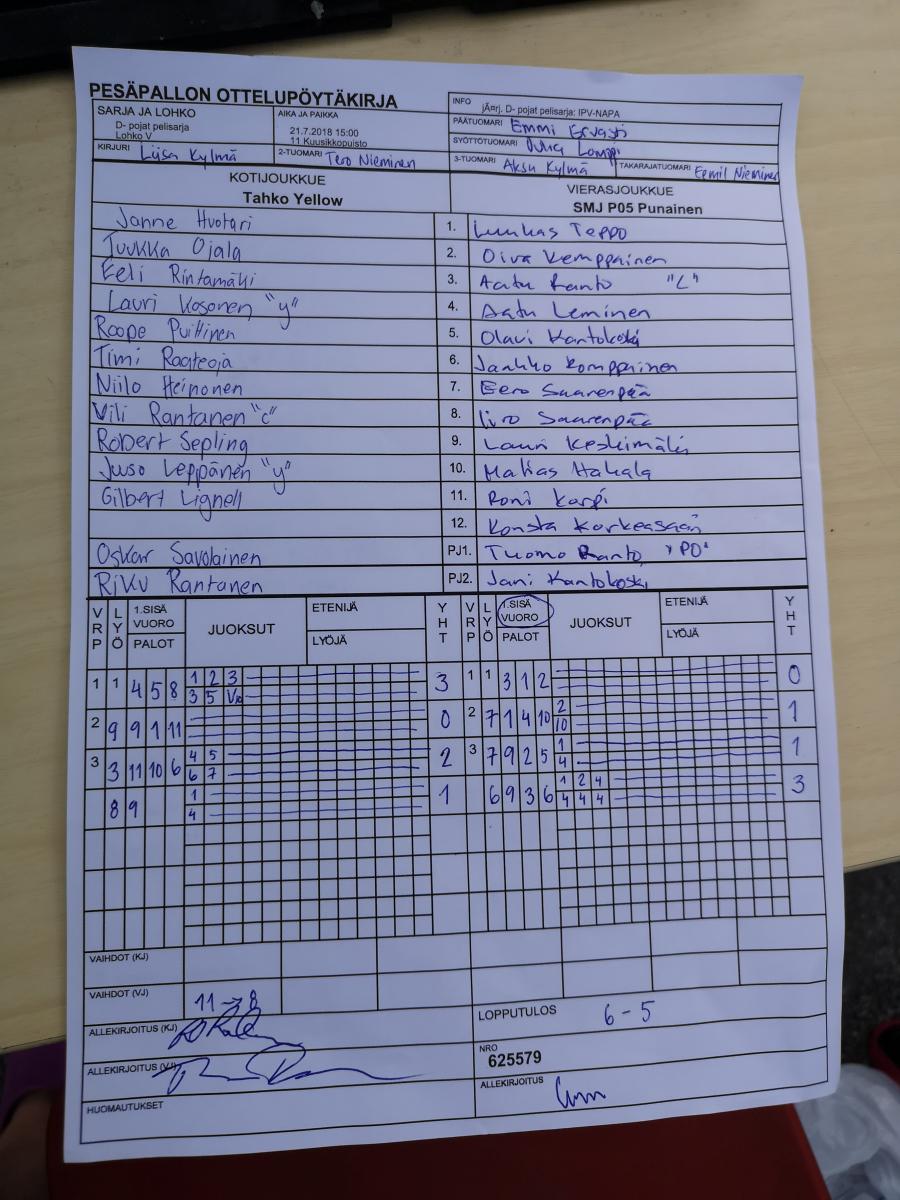 PESÄPALLON OTTELUPÖYTÄKIRJA
SARJA JA LOHKO
D- pojat pelisarja
Lohko V
AIKA JA PAIKKA
21.7.2018 15:00
11 Kuusikkopuisto
INFO
jÃ¤rj. D- pojat pelisarja: IPV-NAPA
PÄÄTUOMARI Emmi Ervasti
SYÖTTÖTUOMARI
KIRJURI Liisa Kylmä
2-TUOMARI Tero Nieminen
3-TUOMARI Aksu Kylmä
TAKARAJATUOMARI Eemil Nieminen
KOTIJOUKKUE
Tahko Yellow
VIERASJOUKKUE
SMJ P05 Punainen
Janne Huotari 1. Luukas Teppo
Tuukka Ojala 2. Oiva Kemppainen
Eeli Rintamäki 3. Aatu Ranto "L"
Lauri Kosonen "y" 4. Aatu Leminen
Roope Puittinen 5. Olavi Kantokoski
Timi Raateoja 6. Jaakko Komppainen
Niilo Heinonen 7. Eero Saarenpää
Vili Rantanen "c" 8. Iiro Saarenpää
Robert Sepling 9. Lauri Keskimäki
Juso Leppänen "y" 10. Matias Hakala
Gilbert Lignell 11. Roni Karpi
12. Konsta Korkeasaari
Oskar Savolainen PJ1. Tuomo Ranto "PO"
Riku Rantanen PJ2. Jani Kantokoski
VRP LYÖ 1.SISÄ VUORO PALOT JUOKSUT ETENIJÄ LYÖJÄ YHT VRP LYÖ 1.SISÄ VUORO PALOT JUOKSUT ETENIJÄ LYÖJÄ YHT
1 1 4 5 8 1 2 3 3 1 1 3 1 2 0
3 5
2 9 9 1 11 0 2 7 1 4 10 2 1
10
3 3 11 10 6 4 5 2 3 7 9 2 5 1 1
6 7 4
8 9 1 1 6 9 3 6 1 2 4 3
4 4 4 4
VAIHDOT (KJ)
VAIHDOT (VJ) 11→8
LOPPUTULOS 6-5
ALLEKIRJOITUS (KJ)
NRO
625579
ALLEKIRJOITUS (VJ)
ALLEKIRJOITUS
HUOMAUTUKSET